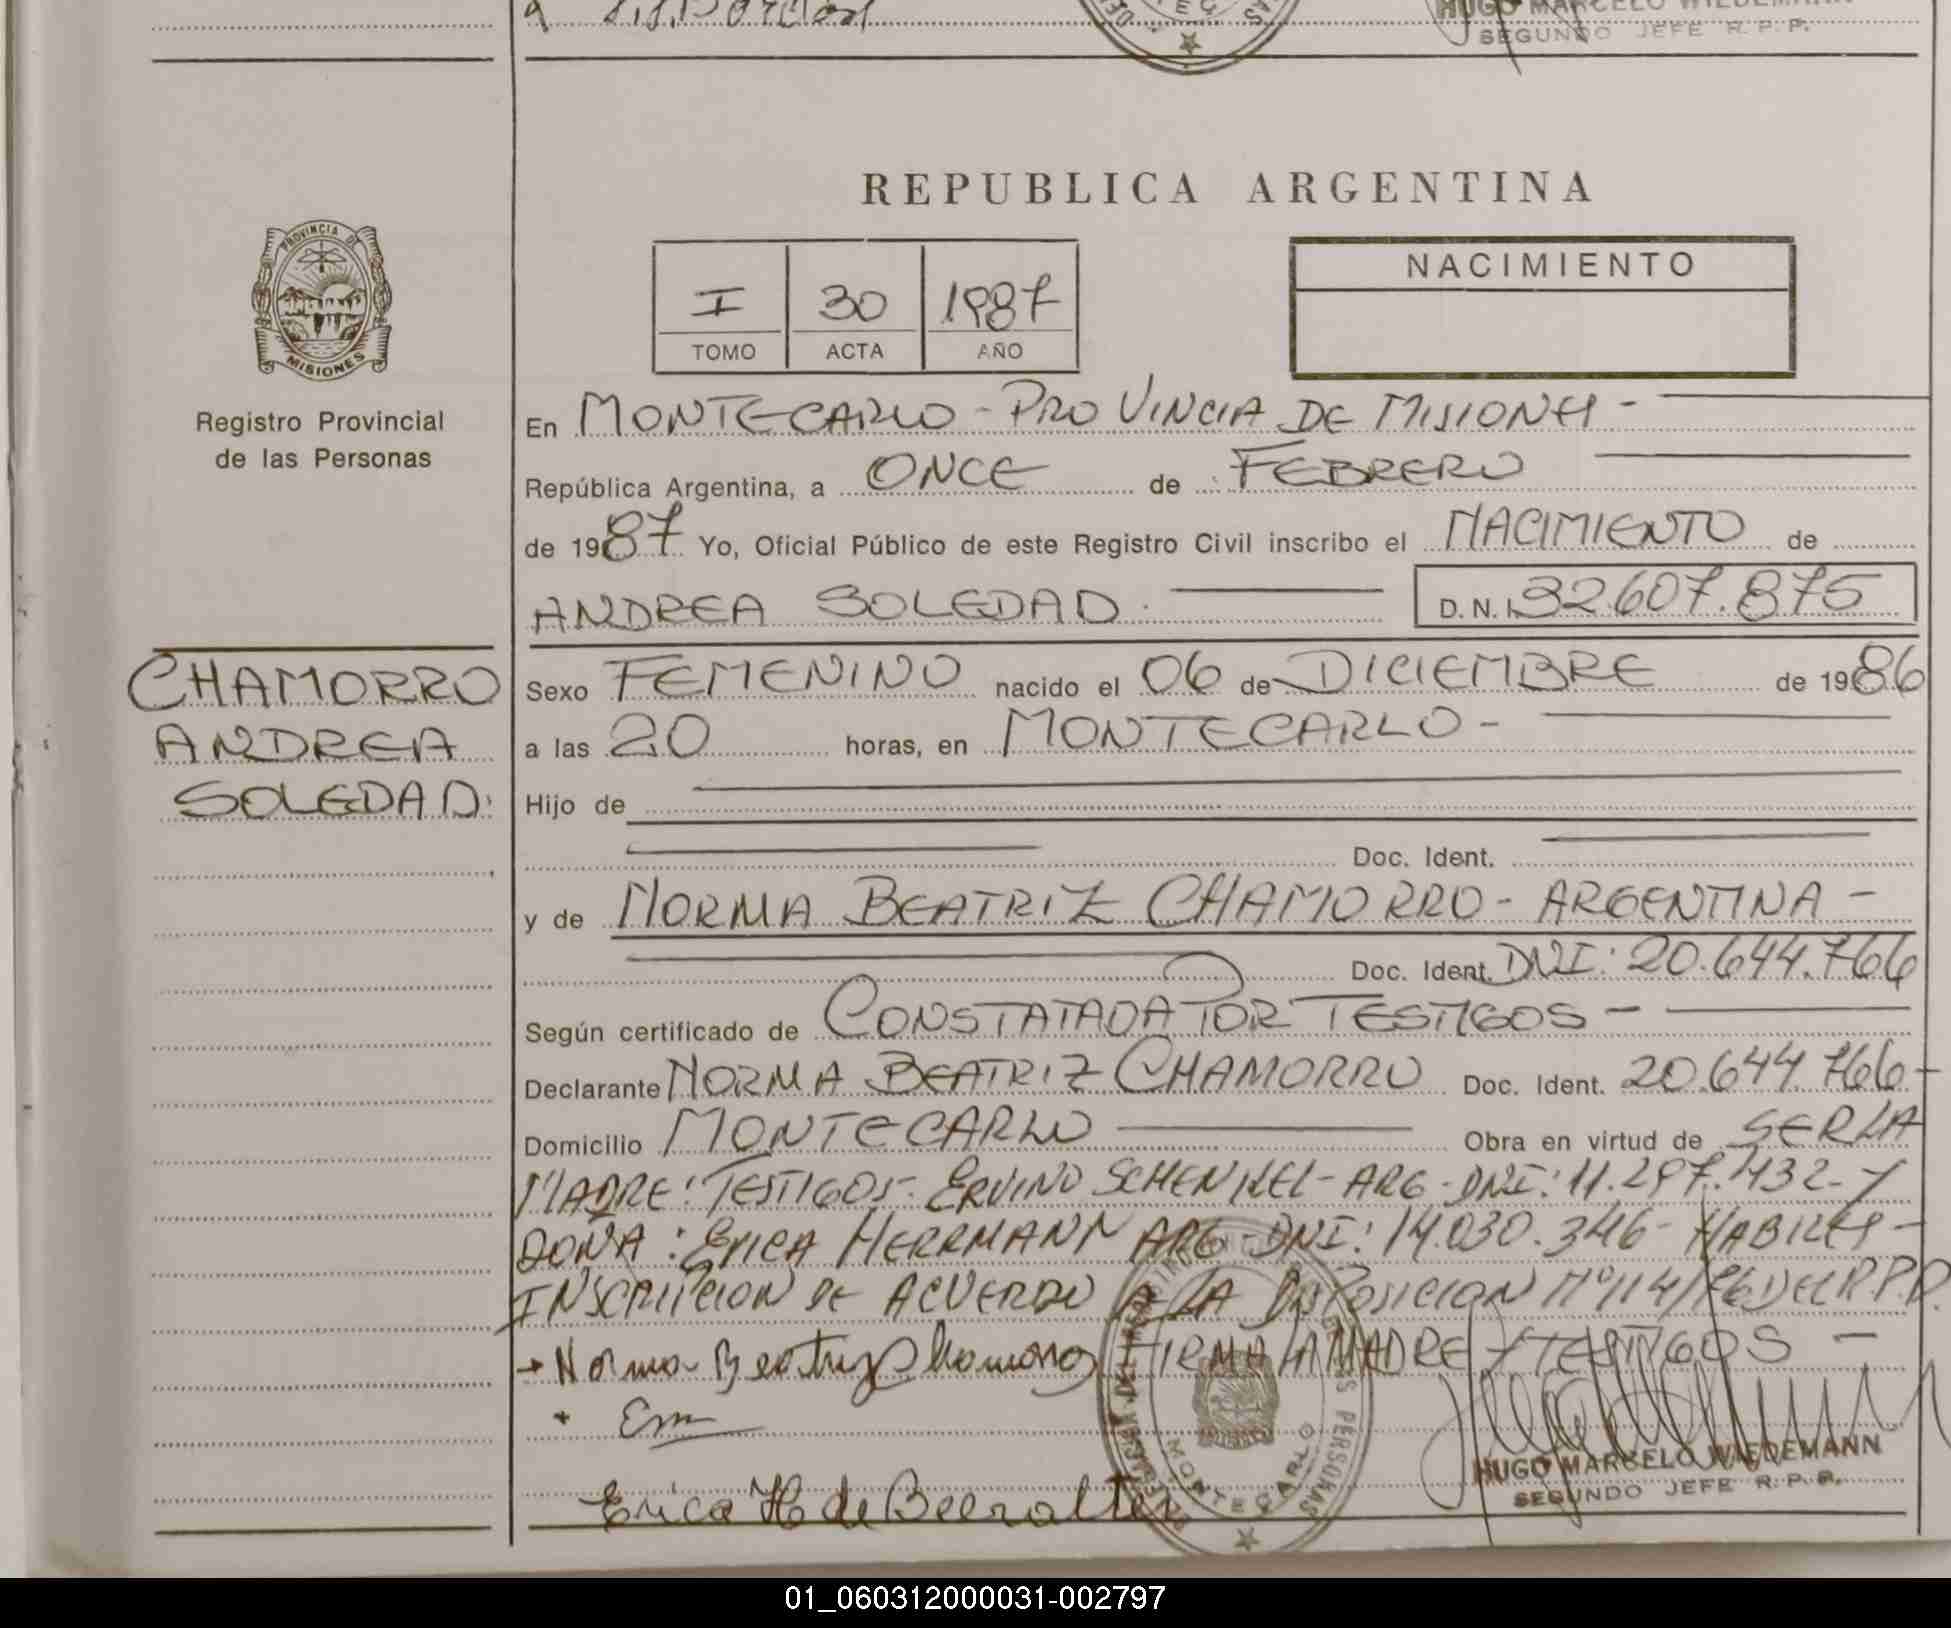 HUGO MARCELO WIEDEMANN
SEGUNDO JEFE R. P. P.
REPUBLICA ARGENTINA
PROVINCIA DE
MISIONES
Registro Provincial
de las Personas
I 30 1987
TOMO ACTA AÑO
NACIMIENTO
En MONTECARLO - PROVINCIA DE MISIONES -
República Argentina, a ONCE de FEBRERO
de 1987 Yo, Oficial Público de este Registro Civil inscribo el NACIMIENTO de
ANDREA SOLEDAD. D. N. I. 32.607.875
CHAMORRO
ANDREA
SOLEDAD.
Sexo FEMENINO nacido el 06 de DICIEMBRE de 1986
a las 20 horas, en MONTECARLO -
Hijo de
Doc. Ident.
y de NORMA BEATRIZ CHAMORRO - ARGENTINA -
Doc. Ident. DNI: 20.644.766
Según certificado de CONSTATADA POR TESTIGOS -
Declarante NORMA BEATRIZ CHAMORRO Doc. Ident. 20.644.766 -
Domicilio MONTECARLO Obra en virtud de SER LA
MADRE: TESTIGOS - ERVINO SCHENKEL - ARG - DNI: 11.297.432 - Y
DOÑA: ERICA HERRMANN ARG - DNI: 14.030.346 - HABILES -
INSCRIPCION DE ACUERDO A LA DISPOSICION Nº 114/86 DEL R.P.P.
Norma Beatriz Chamorro FIRMA LA MADRE Y TESTIGOS -
Erica H de Beeralter
MONTECARLO
HUGO MARCELO WIEDEMANN
SEGUNDO JEFE R. P. P.
01_060312000031-002797